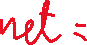 net =